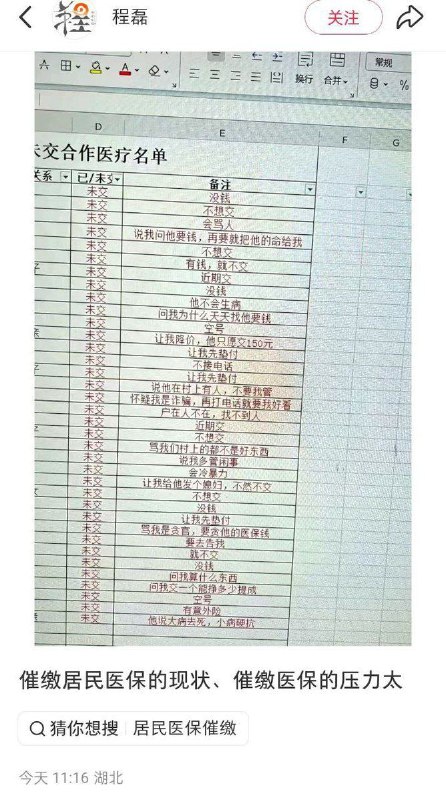 程磊
关注
换行
合并
常规
%
D
E
F
G
未交合作医疗名单
关系
已/未交
备注
未交 没钱
未交 不想交
未交 会骂人
未交 说我问他要钱，再要就把他的命给我
未交 不想交
未交 有钱，就不交
未交 近期交
未交 没钱
未交 他不会生病
未交 问我为什么天天找他要钱
未交 空号
未交 让我降价，他只愿交150元
未交 让我先垫付
未交 不接电话
未交 让我先垫付
未交 说他在村上有人，不要我管
未交 怀疑我是诈骗，再打电话就要我好看
未交 户在人不在，找不到人
未交 近期交
未交 不想交
未交 骂我们村上的都不是好东西
未交 说我多管闲事
未交 会冷暴力
未交 让我给他发个媳妇，不然不交
未交 不想交
未交 没钱
未交 让我先垫付
未交 骂我是贪官，要贪他的医保钱
未交 要去告我
未交 就不交
未交 没钱
未交 问我算什么东西
未交 问我交一个能挣多少提成
未交 空号
未交 有意外险
未交 他说大病去死，小病硬抗
催缴居民医保的现状、催缴医保的压力太
猜你想搜
居民医保催缴
今天 11:16 湖北